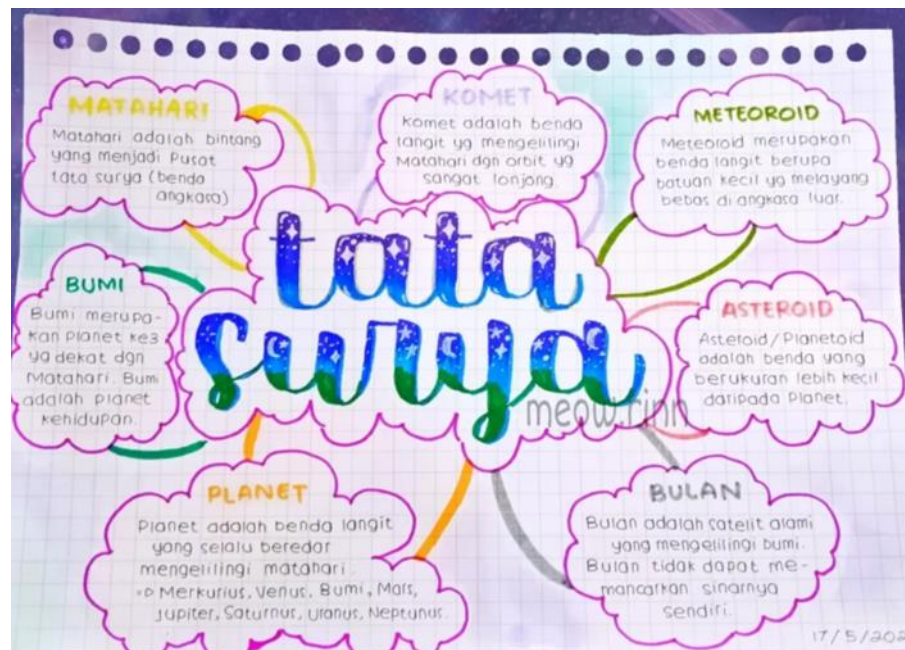 MATAHARI
Matahari adalah bintang
yang menjadi Pusat
tata surya (benda
angkasa)
KOMET
Komet adalah benda
langit yg mengelilingi
Matahari dgn orbit yg
sangat lonjong.
METEOROID
Meteoroid merupakan
benda langit berupa
batuan kecil yg melayang
bebas di angkasa luar.
tata
surya
meow.rinn
BUMI
Bumi merupa-
kan Planet ke3
yg dekat dgn
Matahari. Bumi
adalah planet
kehidupan.
ASTEROID
Asteroid/Planetoid
adalah benda yang
berukuran lebih kecil
daripada Planet.
PLANET
Planet adalah benda langit
yang selalu beredar
mengelilingi matahari.
Merkurius, Venus, Bumi, Mars,
Jupiter, Saturnus, Uranus, Neptunus.
BULAN
Bulan adalah satelit alami
yang mengelilingi bumi.
Bulan tidak dapat me-
mancarkan sinarnya
sendiri.
17/5/202